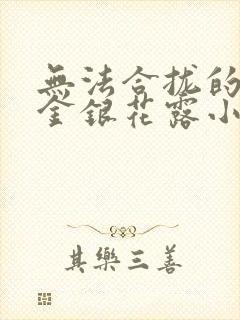 無法合拢的
金銀花露小
其樂三善